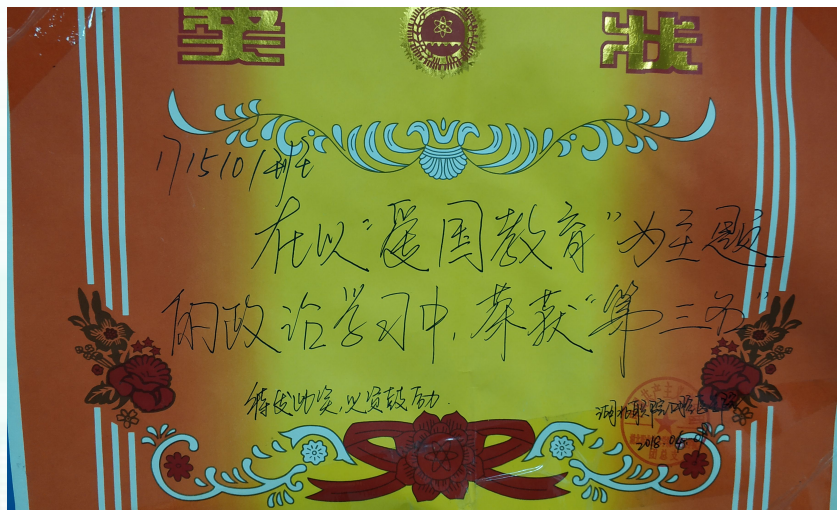 奖状
1715101班
在以“爱国教育”为主题
的政治学习中，荣获“第三名”
特发此奖，以资鼓励.
2018.